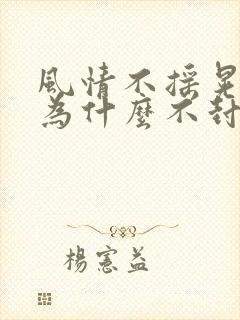 風情不採晃
為什麼不封
楊憲益